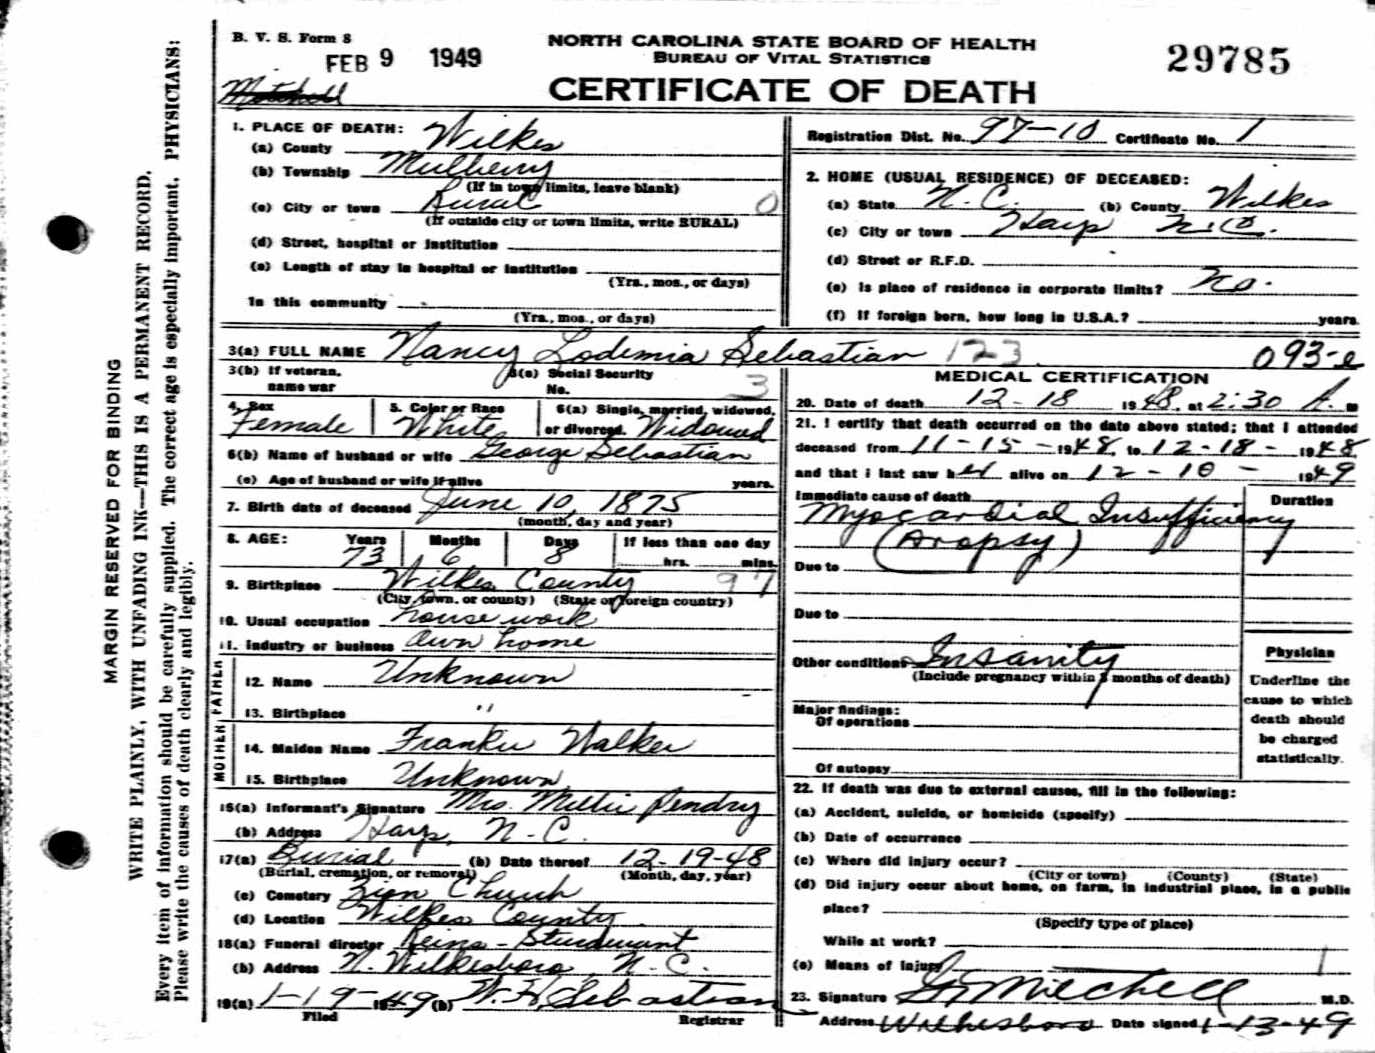 B. V. S. Form 8
FEB 9 1949
NORTH CAROLINA STATE BOARD OF HEALTH
BUREAU OF VITAL STATISTICS
CERTIFICATE OF DEATH
29785
Mitchell
MARGIN RESERVED FOR BINDING
WRITE PLAINLY, WITH UNFADING INK—THIS IS A PERMANENT RECORD.
Every item of information should be carefully supplied. The correct age is especially important. PHYSICIANS:
Please write the causes of death clearly and legibly.
1. PLACE OF DEATH:
(a) County Wilkes
(b) Township Mulberry
(If in town limits, leave blank)
(c) City or town Rural 0
(If outside city or town limits, write RURAL)
(d) Street, hospital or institution
(e) Length of stay in hospital or institution
(Yrs., mos., or days)
In this community
(Yrs., mos., or days)
Registration Dist. No. 97-10 Certificate No. 1
2. HOME (USUAL RESIDENCE) OF DECEASED:
(a) State N.C. (b) County Wilkes
(c) City or town Hays N.C.
(d) Street or R.F.D.
(e) Is place of residence in corporate limits? No.
(f) If foreign born, how long in U.S.A.? years.
3(a) FULL NAME Nancy Lodemia Sebastian 123 093-e
3(b) If veteran, name war
3(c) Social Security No. 3
4. Sex Female
5. Color or Race White
6(a) Single, married, widowed, or divorced. Widowed
6(b) Name of husband or wife George Sebastian
(c) Age of husband or wife if alive years.
7. Birth date of deceased June 10, 1875
(month, day and year)
8. AGE: Years 73 Months 6 Days 8 If less than one day
hrs. mins.
9. Birthplace Wilkes County 97
(City, town, or county) (State or foreign country)
10. Usual occupation house work
11. Industry or business Own home
FATHER
12. Name Unknown
13. Birthplace "
MOTHER
14. Maiden Name Frankie Walker
15. Birthplace Unknown
16(a) Informant's Signature Mrs. Millie Pendry
(b) Address Hays, N.C.
17(a) Burial (b) Date thereof 12-19-48
(Burial, cremation, or removal) (Month, day, year)
(c) Cemetery Zion Church
(d) Location Wilkes County
18(a) Funeral director Reins-Sturdivant
(b) Address N. Wilkesboro, N.C.
19(a) 1-19-1949 (b) W. H. Sebastian
Filed Registrar
MEDICAL CERTIFICATION
20. Date of death 12-18 1948, at 2:30 A. m
21. I certify that death occurred on the date above stated; that I attended
deceased from 11-15-1948, to 12-18-1948
and that I last saw her alive on 12-10-1949
Immediate cause of death Duration
Myocardial Insufficiency
(Dropsy)
Due to
Due to
Other conditions Insanity
(Include pregnancy within 3 months of death)
Major findings:
Of operations
Of autopsy
Physician
Underline the
cause to which
death should
be charged
statistically.
22. If death was due to external causes, fill in the following:
(a) Accident, suicide, or homicide (specify)
(b) Date of occurrence
(c) Where did injury occur?
(City or town) (County) (State)
(d) Did injury occur about home, on farm, in industrial place, in a public
place?
(Specify type of place)
While at work?
(e) Means of Injury 1
23. Signature Mitchell M.D.
Address Wilkesboro Date signed 1-13-49